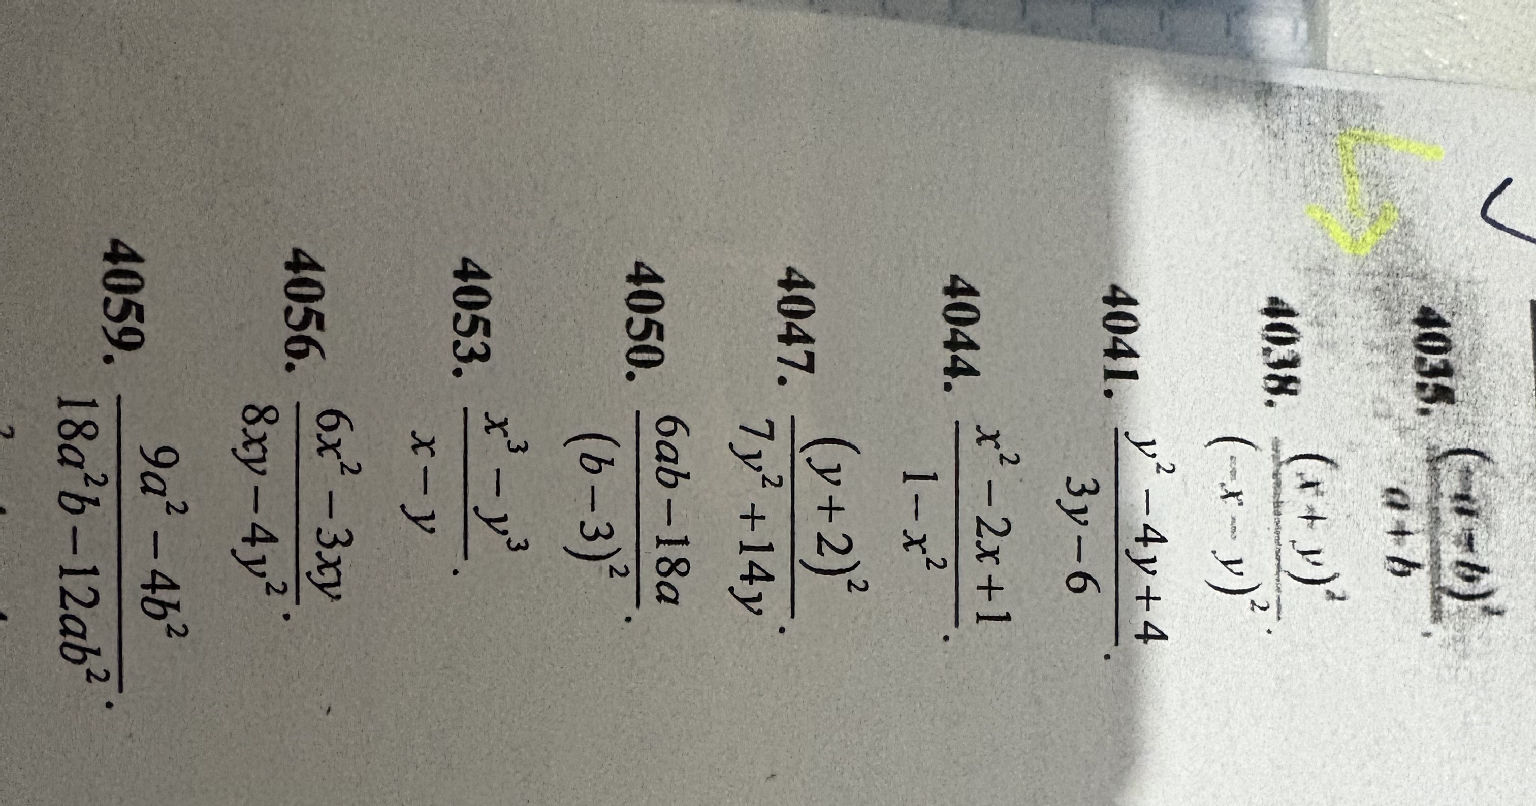 4035. (-a-b)²/(a+b).
4038. (x+y)²/(-x-y)².
4041. (y²-4y+4)/(3y-6).
4044. (x²-2x+1)/(1-x²).
4047. (y+2)²/(7y²+14y).
4050. (6ab-18a)/(b-3)².
4053. (x³-y³)/(x-y).
4056. (6x²-3xy)/(8xy-4y²).
4059. (9a²-4b²)/(18a²b-12ab²).